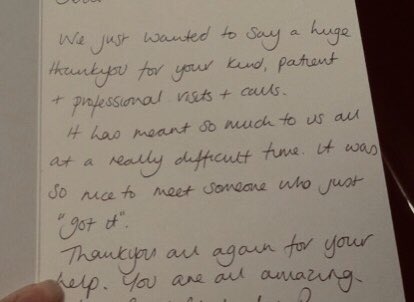 We just wanted to say a huge
thankyou for your kind, patient
+ professional visits + calls.
It has meant so much to us all
at a really difficult time. It was
so nice to meet someone who just
"got it".
Thankyou all again for your
help. You are all amazing.